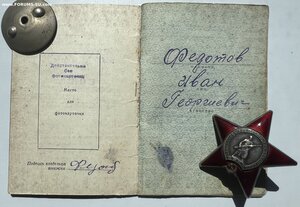 www.FORUMS-SU.com
Действительно
без
фотокарточки
Место
для
фотокарточки
Подпись владельца
книжки
Федотов
Иван
Георгиевич